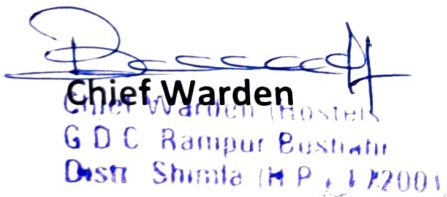 Chief Warden
Chief Warden (Hostel)
G D C Rampur Bushahr
Distt Shimla (H P